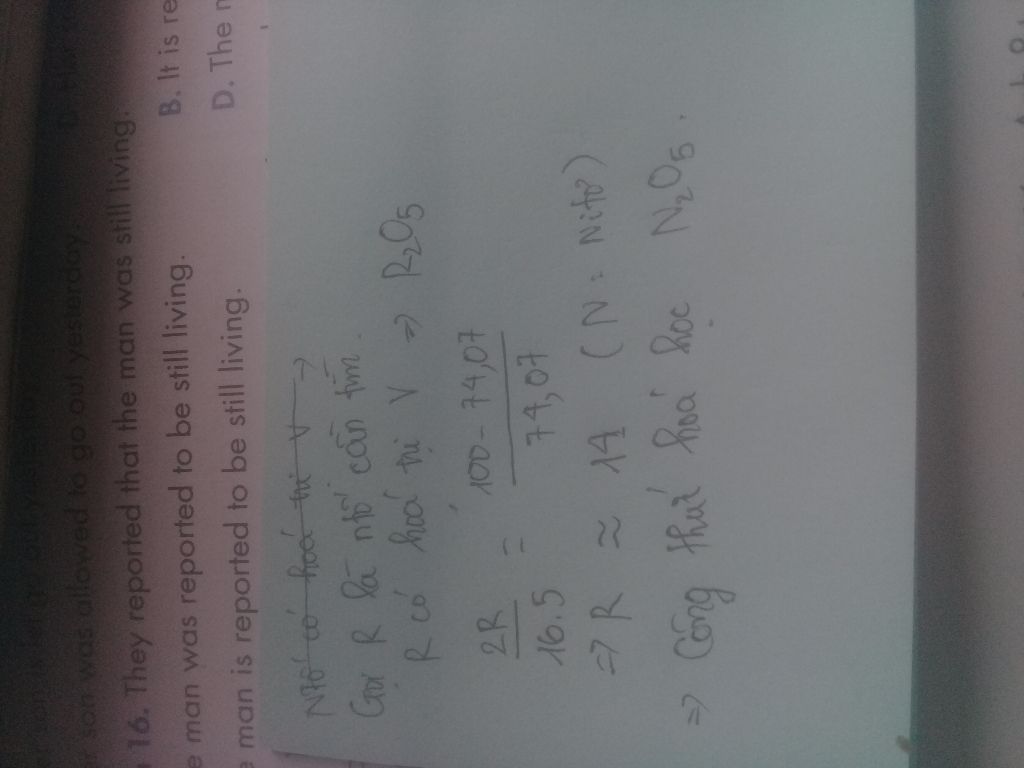 son was allowed to go out yesterday.
16. They reported that the man was still living.
man was reported to be still living.
B. It is re
man is reported to be still living.
D. The
Ntố có hoá trị V →
Gọi R là ntố cần tìm.
R có hoá trị V => R2O5
2R/16.5 = 100-74,07/74,07
=> R ≈ 14 (N: Nitơ)
=> Công thức hoá học N2O5.